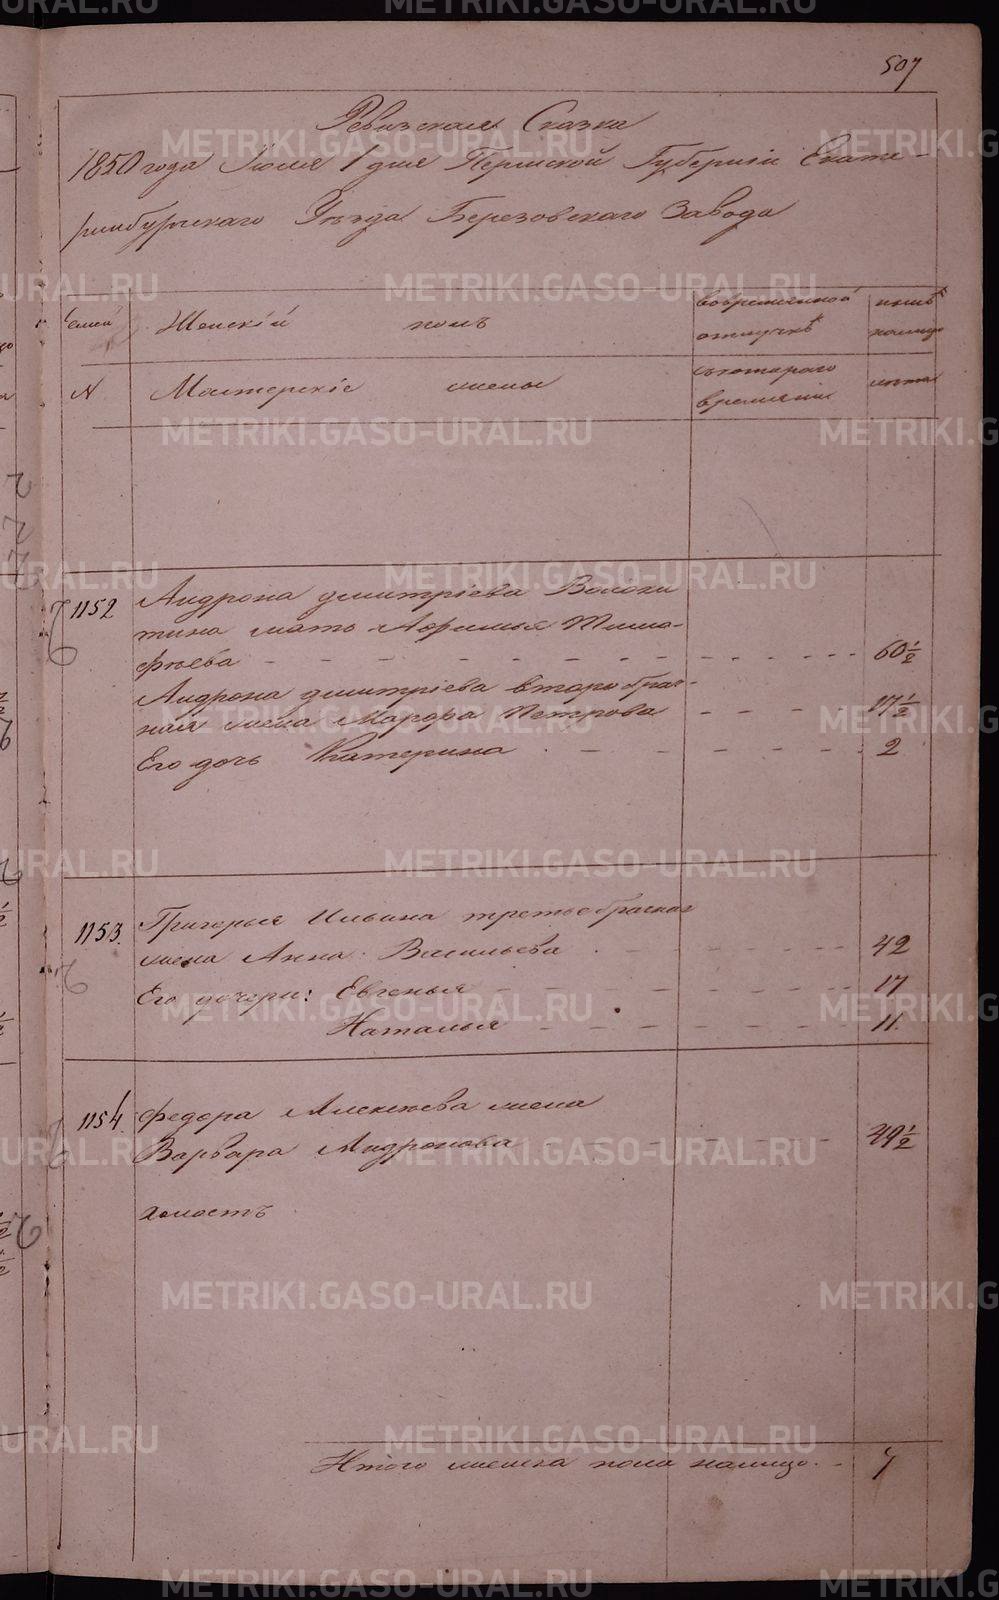 507
Ревизская Сказка
1850 года Июля 1 дня Пермской Губернiи Екате-
ринбургскаго Уѣзда Березовскаго Завода
Женскiй полъ
во временной
отлучкѣ
нынѣ
налицо
семей
N
Мастерскiе жены
съ котораго
времяни
лѣта
1152
Андрона Дмитрiева Волоки
тина мать
фѣева 60 1/2
Андрона Дмитрiева второбрач-
ная жена Марфа Петрова 17 1/2
Его дочь Катерина 2
1153.
Григорья Ильина третьебрачная
жена Анна Васильева 42
Его дочери: Евгенья 17
Наталья 11
1154
Федора Алексѣева жена
Варвара Андронова 49 1/2
холостъ
Итого женска пола налицо 7
METRIKI.GASO-URAL.RU